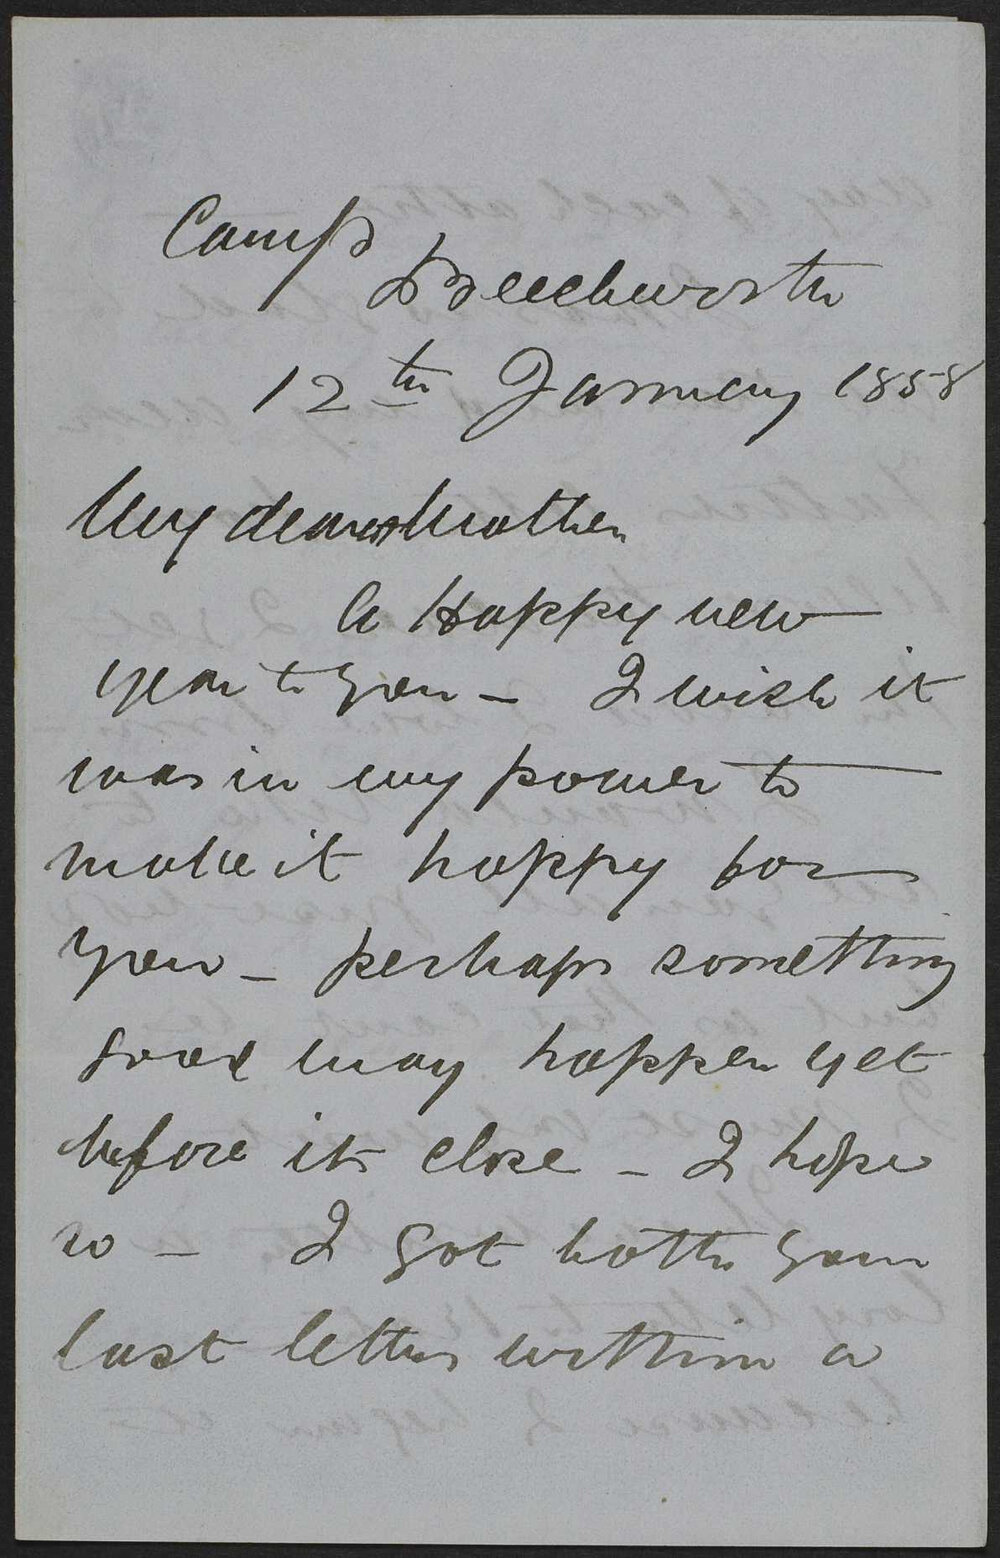 Camp
Beechworth
12th January 1858
My dearest Mother
A Happy new
year to you – I wish it
was in my power to
make it happy for
you – perhaps something
good may happen yet
before its close – I hope
so – I got both your
last letters within a